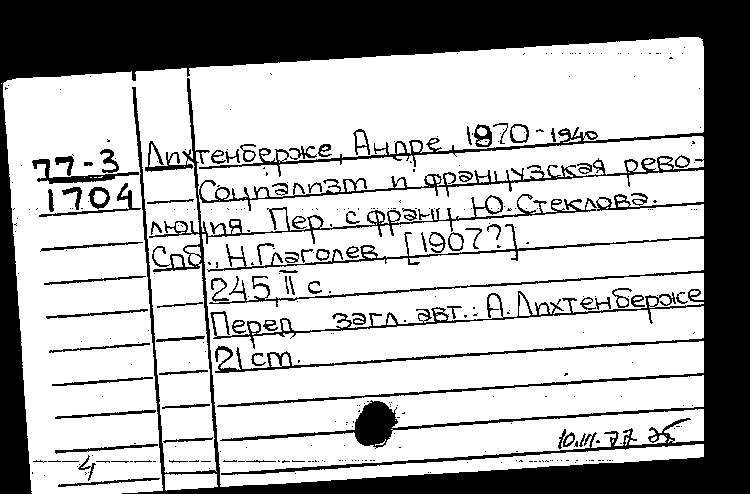 77-3
1704
Лихтенберже, Андре, 1870-1940
Социализм и французская рево-
люция. Пер. с франц. Ю. Стеклова.
Спб., Н. Глаголев, [1907?].
245, II с.
Перед загл. авт.: А. Лихтенберже
21 cm.
10.III.77
4